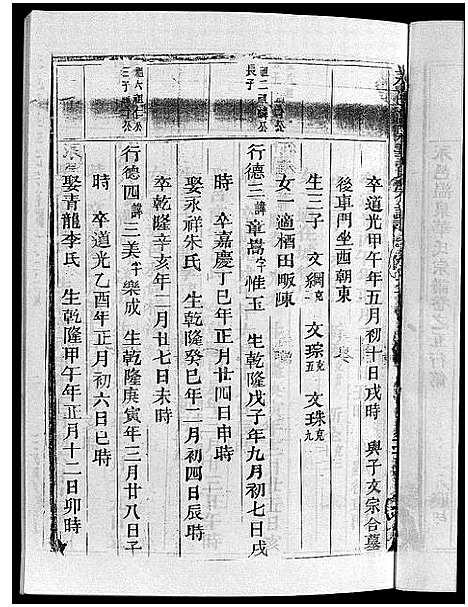 卒道光甲午年五月初十日戌時　與子文宗合墓
後車門坐西朝東
生三子　文綱克　文琮克五　文珠克九
女一適栖田畈陳
祖二房麟公長子
行德三諱章嵩字惟玉　生乾隆戊子年九月初七日戌
時　卒嘉慶丁巳年正月廿四日申時
娶永祥朱氏　生乾隆癸巳年二月初四日辰時
卒乾隆辛亥年二月廿七日未時
三子
行德四諱三美字樂成　生乾隆庚寅年三月廿八日子
時　卒道光乙酉年正月初六日巳時
娶青龍李氏　生乾隆甲午年正月十二日卯時